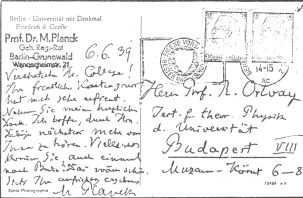 Berlin - Universität mit Denkmal
Friedrich d. Große
Prof. Dr. M. Planck
Geh. Reg.-Rat
Berlin-Grunewald
Wangenheimstr. 21
6.6.39
Verehrter Hr. College!
Ihr freundlicher Kartengruss
hat mich sehr erfreut.
Nehmen Sie meinen herzlichen
Dank. Ich hoffe, durch Hrn.
nächstens mehr von
Ihnen zu hören. Vielleicht
können Sie auch einmal
nach Berlin. Das wäre schön.
Stets Ihr aufrichtig ergebener
M. Planck
Echte Photographie
14-15
Herrn Prof. R. Ortvay
Inst. f. theor. Physik
d. Universität
Budapest VIII
Muzeum-Körut 6-8